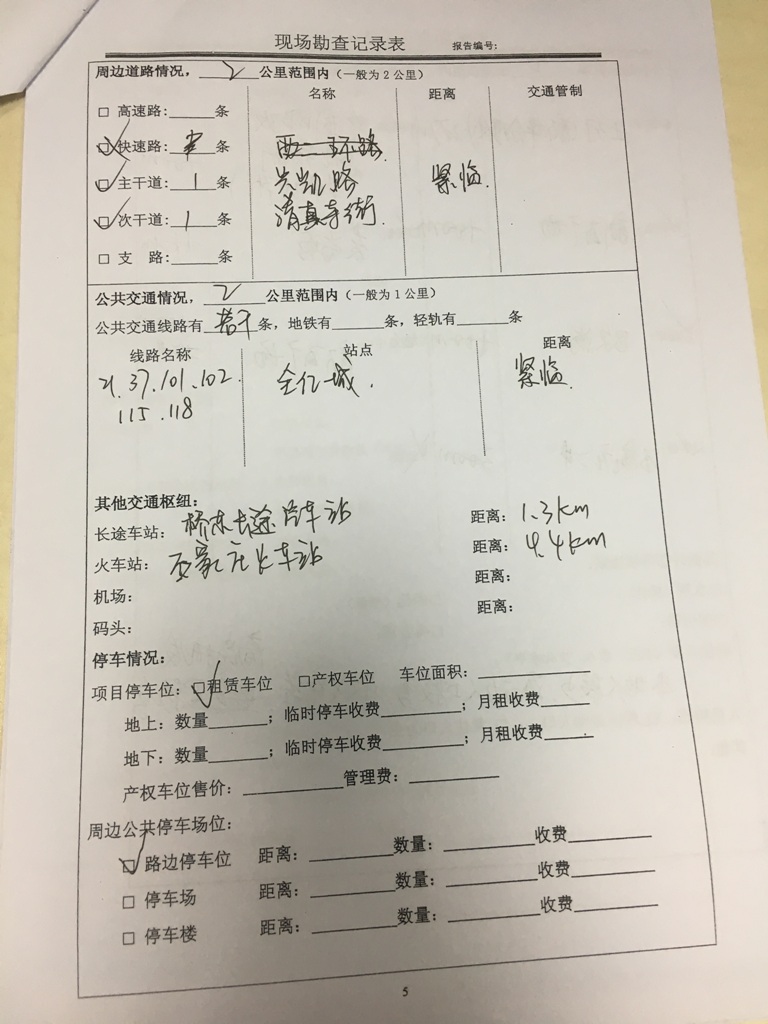 现场勘查记录表 报告编号:
周边道路情况，2公里范围内（一般为2公里）
名称 距离 交通管制
□ 高速路:______条
☑ 快速路:______条
☑ 主干道: 1 条 兴凯路 紧临.
☑ 次干道: 1 条 清真寺街.
□ 支 路:______条
公共交通情况，2公里范围内（一般为1公里）
公共交通线路有若干条，地铁有______条，轻轨有______条
线路名称 站点 距离
21.37.101.102. 全亿城. 紧临.
115.118
其他交通枢纽:
长途车站: 桥东长途汽车站 距离: 1.3km
火车站: 石家庄火车站 距离: 4.4km
机场: 距离:
码头: 距离:
停车情况:
项目停车位: ☑租赁车位 □产权车位 车位面积: ____________
地上: 数量______; 临时停车收费________; 月租收费_____
地下: 数量______; 临时停车收费________; 月租收费_____
产权车位售价: __________管理费: _________
周边公共停车场位:
☑ 路边停车位 距离: ________数量: _________收费________
□ 停车场 距离: ________数量: _________收费________
□ 停车楼 距离: ________数量: _________收费________
5